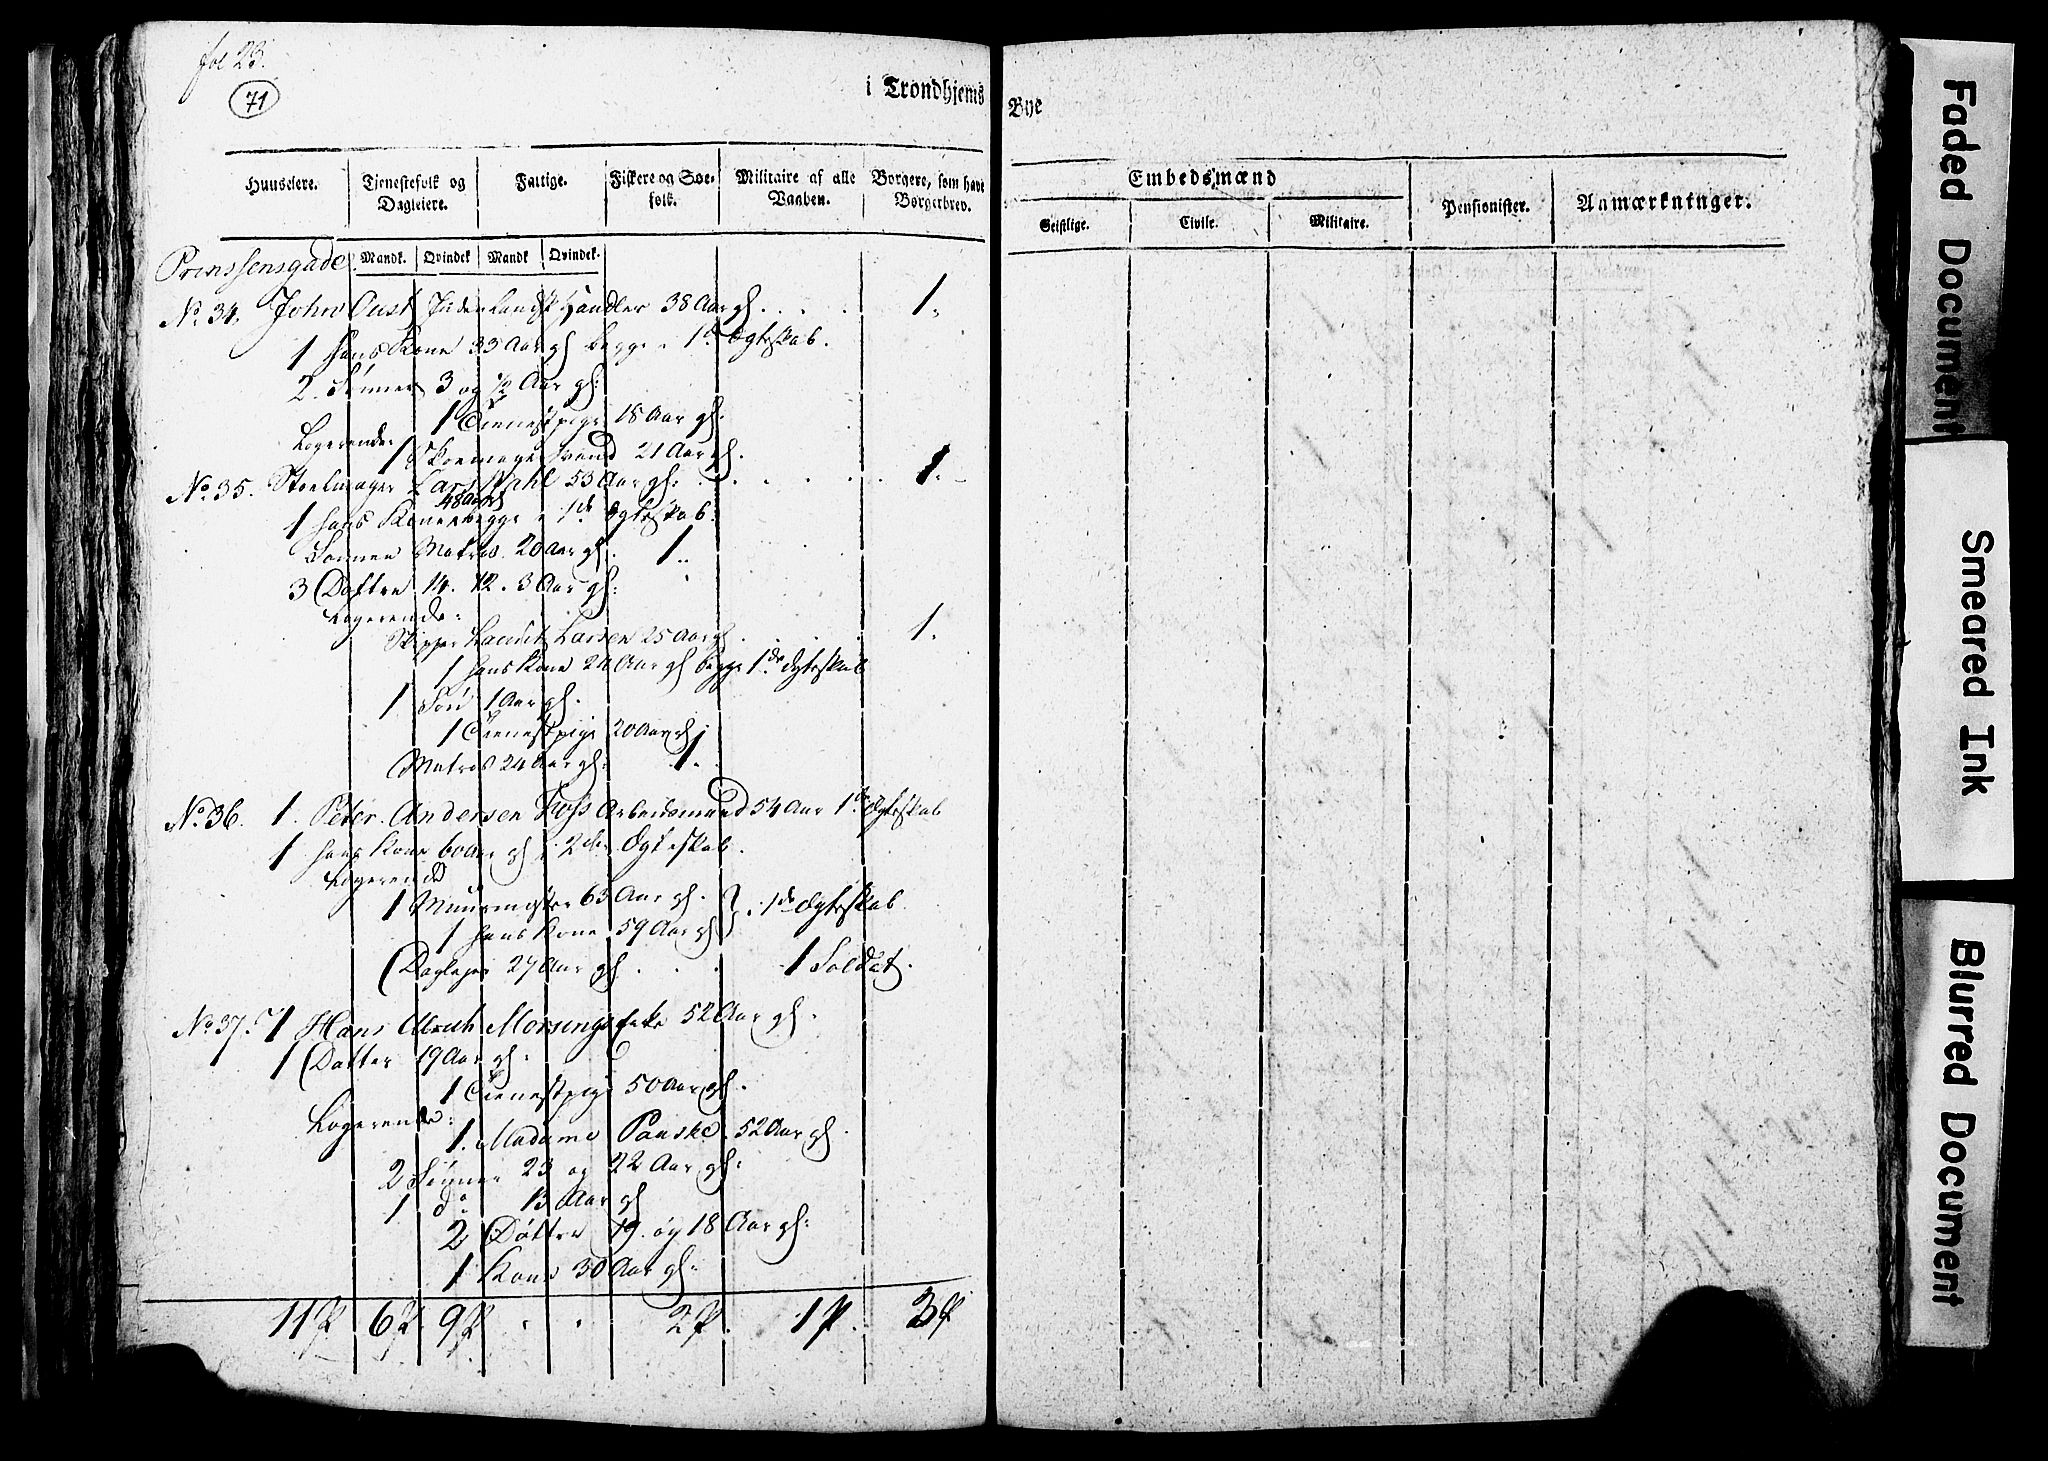 fol 23.
71
i Trondhjems Bye
Huuseiere. Tjenestefolk og Dagleiere. Fattige. Fiskere og Søefolk. Militaire af alle Vaaben. Borgere, som have Borgerbrev. Embedsmænd Pensionister. Anmærkninger.
Geistlige. Civile. Militaire.
Mandk. Qvindek Mandk Qvindek.
Prinssensgade.
No. 34. John Oust Indenlandsk Handler 38 Aar gl. 1.
1 hans Kone 33 Aar gl begge i 1de Ægteskab.
2. Sønner 3 og 1/2 Aar gl:
1 Tienestpige 18 Aar gl.
Logerende:
1 Skoemager Svend 21 Aar gl.
No. 35. Stoelmager Lars Dahl 53 Aar gl: 1.
48 Aar gl
1 hans Kone begge i 1de Ægteskab.
Sønnen Matros 20 Aar gl. 1.
3 Døttre 14. 12. 3 Aar gl:
Logerende:
Skipper Laurits Larsen 25 Aar gl. 1.
1 hans Kone 24 Aar gl begge 1de Ægteskab
1 Søn 1 Aar gl.
1 Tienestpige 20 Aar gl
Matros 24 Aar gl. 1.
No. 36. 1. Peter Andersen Foss Arbeidsmand 54 Aar 1de Ægteskab
1 hans Kone 60 Aar gl i 2det Ægteskab.
Logerende
1 Muurmester 63 Aar gl. } 1de Ægteskab
1 hans Kone 59 Aar gl
Daglejer 27 Aar gl 1 Soldat.
No. 37. 1 Hans Ulrich Morsings Enke 52 Aar gl.
1 Datter 19 Aar gl:
1 Tienestpige 50 Aar gl.
Logerende:
1. Madame Panske 52 Aar gl.
2 Sønner 23 og 22 Aar gl:
1 do 13 Aar gl
2 Døttre 19. og 18 Aar gl:
1 Kone 30 Aar gl:
11 P 6 P. 9 P 2 P. 1 P. 3 P
Faded Document
Smeared Ink
Blurred Document